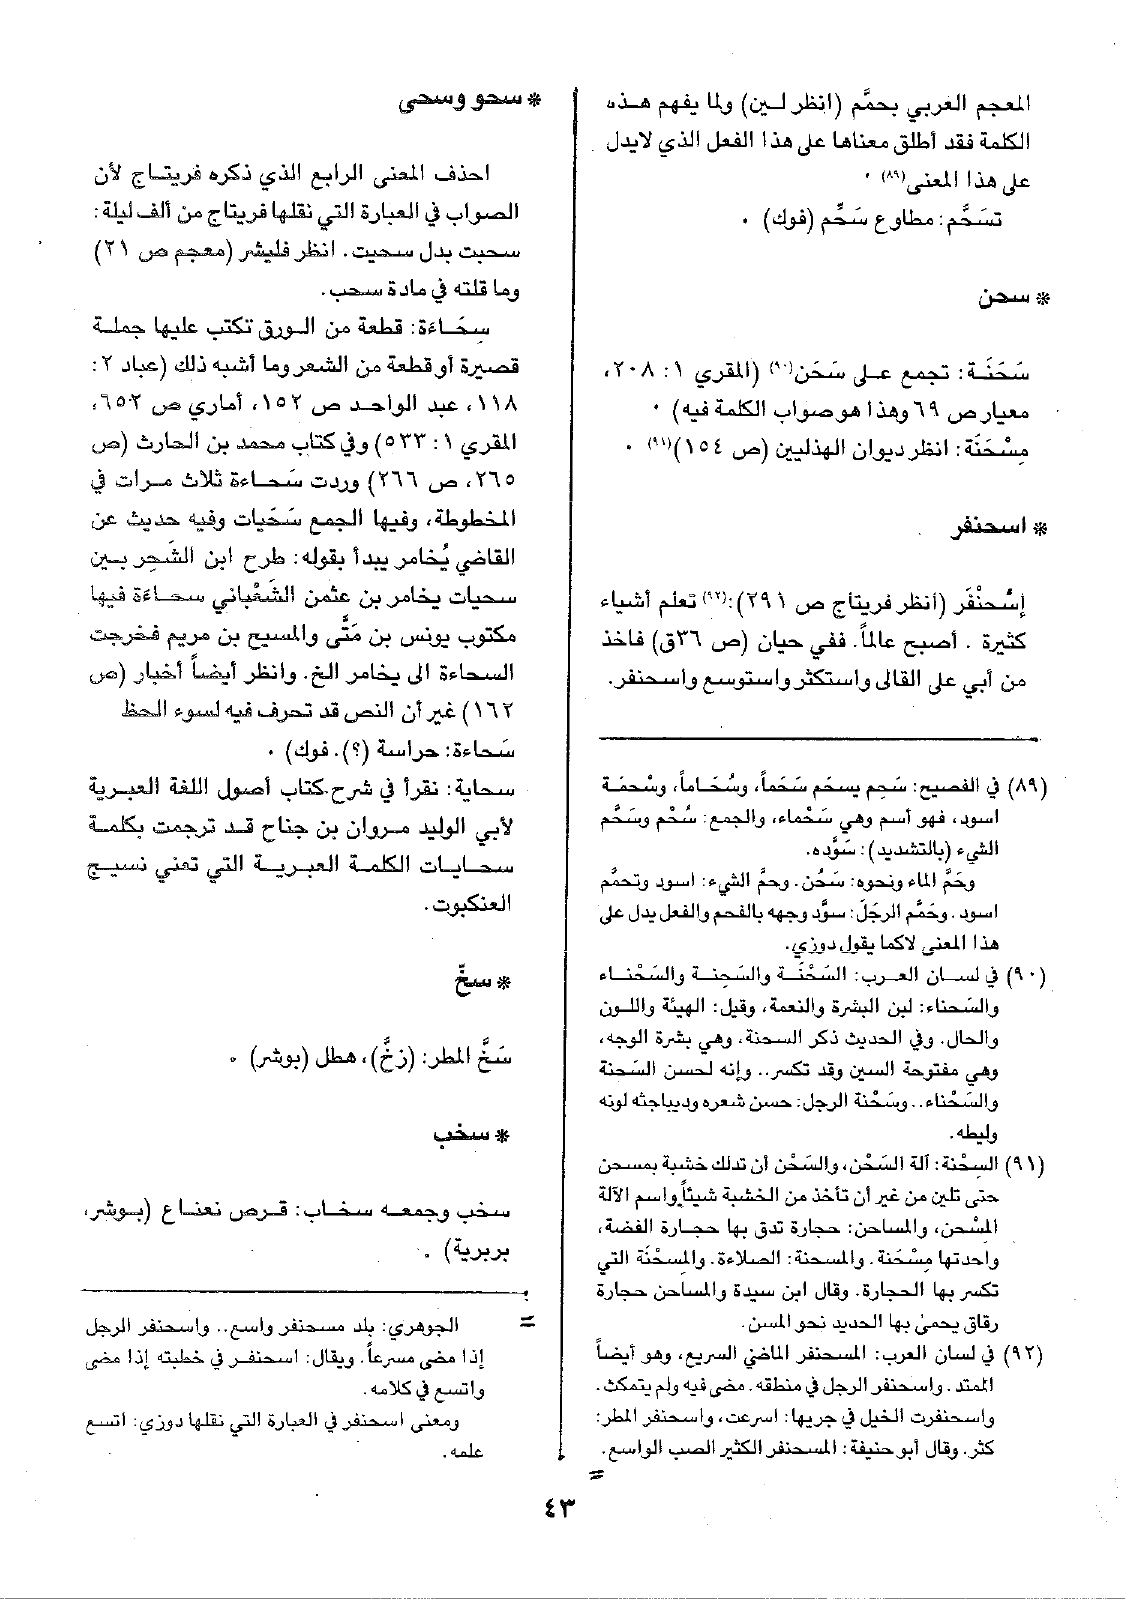 المعجم العربي بحمَّم (انظر لين) ولما يفهم هـذه
الكلمة فقد أطلق معناها على هذا الفعل الذي لايدل
على هذا المعنى(٨٩) .
تسَخَّم: مطاوع سَخَّم (فوك) .
* سحن
سَحَنَـة: تجمع علـى سَحَن(٩٠) (المقري ١: ٢٠٨،
معيار ص ٦٩ وهذا هو صواب الكلمة فيه) .
مِسْحَنَة: انظر ديوان الهذليين (ص ١٥٤)(٩١) .
* اسحنفر
إسْحنْفَر (أنظر فريتاج ص ٢٩١):(٩٢) تعلم أشياء
كثيرة . أصبح عالماً. ففي حيان (ص ٣٦ق) فاخذ
من أبي على القالى واستكثر واستوسع واسحنفر.
(٨٩) في الفصيح: سَحِم يسحَم سَحَماً، وسُحَـاماً، وسُحْمَـة
اسود، فهو أسم وهي سَحْماء، والجمع: سُحْم وسَحَّم
الشيء (بالتشديد): سَوَّده.
وحَمَّ الماء ونحوه: سَخُن. وحمَّ الشيء: اسود وتحمَّم
اسود. وحَمَّم الرجلَ: سوَّد وجهه بالفحم والفعل يدل على
هذا المعنى لاكما يقول دوزي.
(٩٠) في لسـان العـرب: السَّحْنَـة والسَّحِنـة والسَّحْنـاء
والسَّحناء: لين البشرة والنعمة، وقيل: الهيئة واللـون
والحال. وفي الحديث ذكر السحنة، وهي بشرة الوجه،
وهي مفتوحة السين وقد تكسر.. وإنه لحسن السَّحنة
والسَّحْناء.. وسَحْنة الرجل: حسن شعره وديباجته لونه
وليطه.
(٩١) السحْنة: آلة السَّحْن، والسَّحْن أن تدلك خشبة بمسحن
حتى تلين من غير أن تأخذ من الخشبة شيئاً واسم الآلة
المسْحن، والمساحن: حجارة تدق بها حجـارة الفضة،
واحدتها مِسْحَنة. والمسحنة: الصلاءة. والمسحْنَة التي
تكسر بها الحجارة. وقال ابن سيدة والمسَاحن حجارة
رقاق يحمىٰ بها الحديد نحو المسن.
(٩٢) في لسان العرب: المسحنفر الماضي السريع، وهو أيضاً
الممتد. واسحنفر الرجل في منطقه. مضى فيه ولم يتمكث.
واسحنفرت الخيل في جريها: اسرعت، واسحنفر المطر:
كثر. وقال أبو حنيفة: المسحنفر الكثير الصب الواسع.
=
* سحو وسحى
احذف المعنى الرابع الذي ذكره فريتـاج لأن
الصواب في العبارة التي نقلها فريتاج من ألف ليلة:
سحبت بدل سحيت. انظر فليشر (معجم ص ٢١)
وما قلته في مادة سحب.
سِحَـاءَة: قطعة من الـورق تكتب عليها جملـة
قصيرة أو قطعة من الشعر وما أشبه ذلك (عباد ٢:
١١٨، عبد الواحـد ص ١٥٢، أماري ص ٦٥٢،
المقري ١: ٥٣٣) وفي كتاب محمد بن الحارث (ص
٢٦٥، ص ٢٦٦) وردت سَحـاءة ثلاث مـرات في
المخطوطة، وفيها الجمع سَحَيات وفيه حديث عن
القاضي يُخامر يبدأ بقوله: طرح ابن الشَّجر بـين
سحيات يخامر بن عثمن الشَعْباني سحـاءَة فيها
مكتوب يونس بن مَتَّى والمسيح بن مريم فخرجت
السحاءة الى يخامر الخ. وانظر أيضاً أخبار (ص
١٦٢) غير أن النص قد تحرف فيه لسوء الحظ
سَحاءة: حراسة (؟). فوك) .
سحاية: نقرأ في شرح كتاب أصول اللغة العبرية
لأبي الوليد مـروان بن جناح قـد ترجمت بكلمـة
سحـايـات الكلمـة العبريـة التي تعني نسيـج
العنكبوت.
* سخّ
سَخَّ المطر: (زخَّ)، هطل (بوشر) .
* سخب
سخب وجمعـه سخـاب: قـرص نعناع (بـوشر،
بربرية) .
= الجوهري: بلد مسحنفر واسع.. واسحنفر الرجل
إذا مضى مسرعاً. ويقال: اسحنفـر في خطبته إذا مضى
واتسع في كلامه.
ومعنى اسحنفر في العبارة التي نقلها دوزي: اتسع
علمه.
٤٣